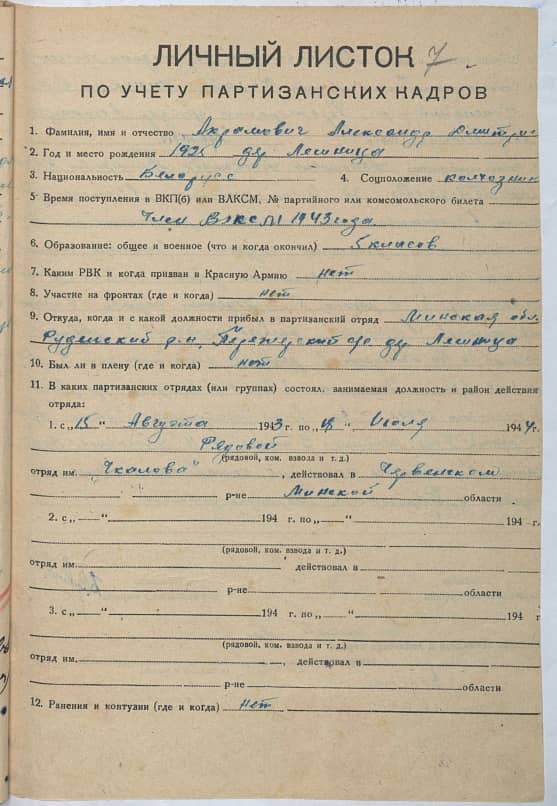 ЛИЧНЫЙ ЛИСТОК 7
ПО УЧЕТУ ПАРТИЗАНСКИХ КАДРОВ
1. Фамилия, имя и отчество Ахрамович Александр
2. Год и место рождения де. Лешница
3. Национальность Белорус 4. Соцположение колхозник
5 Время поступления в ВКП(б) или ВЛКСМ, № партийного или комсомольского билета
Член ВЛКСМ 1943 года
6. Образование: общее и военное (что и когда окончил) 5 класов
7. Каким РВК и когда призван в Красную Армию нет
8. Участие на фронтах (где и когда) нет
9. Откуда, когда и с какой должности прибыл в партизанский отряд Минская обл.
Руденский р-н, с/с де. Лешница
10. Был ли в плену (где и когда) нет
11. В каких партизанских отрядах (или группах) состоял, занимаемая должность и район действия
отряда:
1. с „15“ Августа 1943 г. по „ “ Июля 1944 г.
Рядовой
(рядовой, ком. взвода и т. д.)
отряд им. „Чкалова“, действовал в Червенском
р-не Минской области
2. с „—“ 194 г. по „—“ 194 г.
(рядовой, ком. взвода и т. д.)
отряд им. действовал в
р-не области
3. с „—“ 194 г. по „—“ 194 г
(рядовой, ком. взвода и т. д.)
отряд им. , действовал в
р-не области
12. Ранения и контузии (где и когда) нет